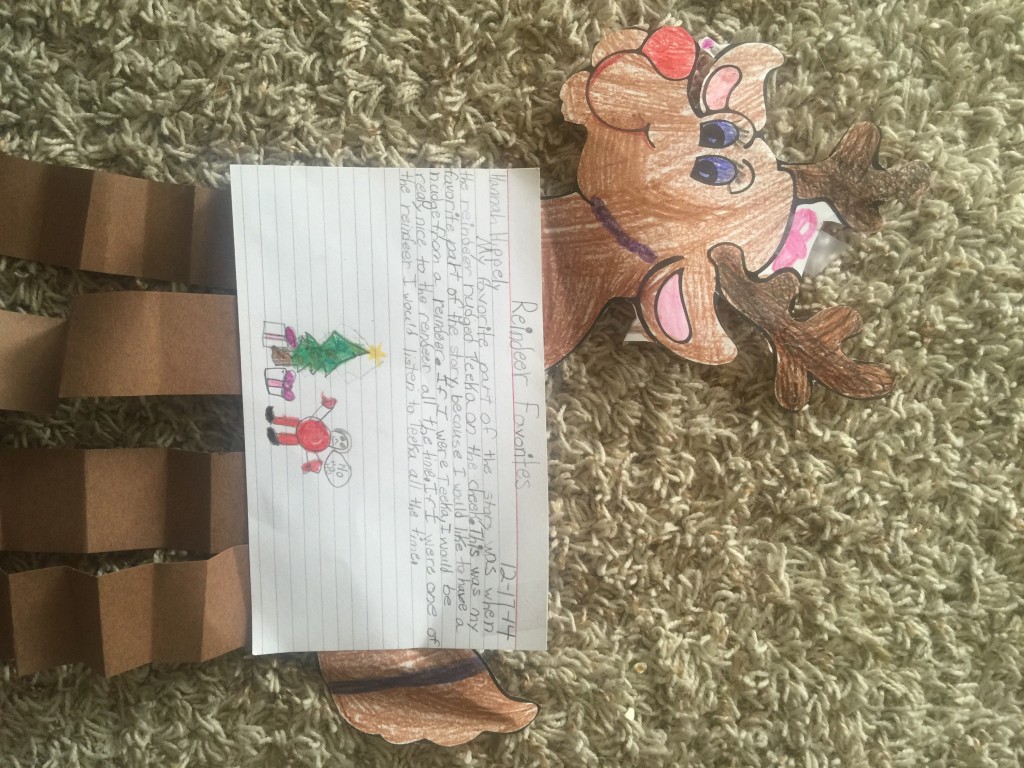 Reindeer Favorites
12-17-14
Hannah
My favorite part of the story was when
the reindeer nudged Teeka on the cheek. This was my
favorite part of the story, because I would like to have a
nudge from a reindeer. If I were Teeka, I would be
realy nice to the reindeer all the time. If I were one of
the reindeer I would listen to Teeka all the time.
Ho